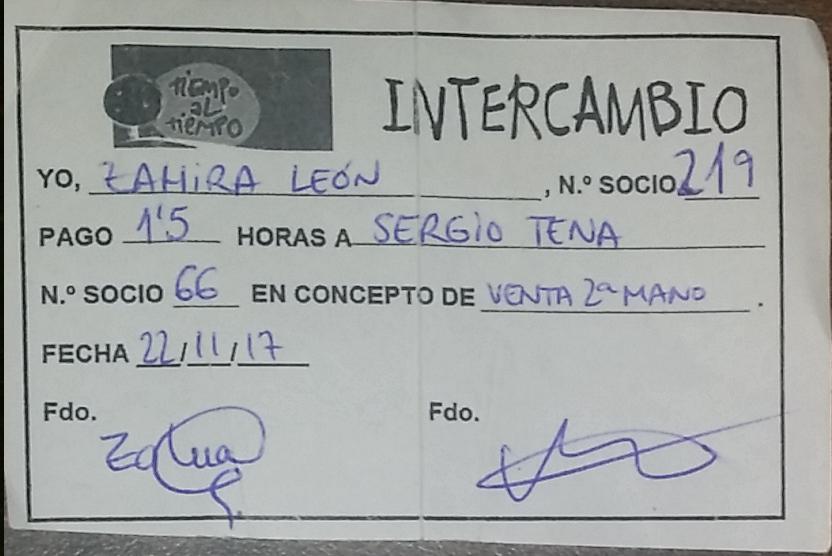 tiempo
al
tiempo
INTERCAMBIO
YO, ZAHIRA LEÓN, N.º SOCIO 219
PAGO 1'5 HORAS A SERGIO TENA
N.º SOCIO 66 EN CONCEPTO DE VENTA 2ª MANO.
FECHA 22/11/17
Fdo. Fdo.